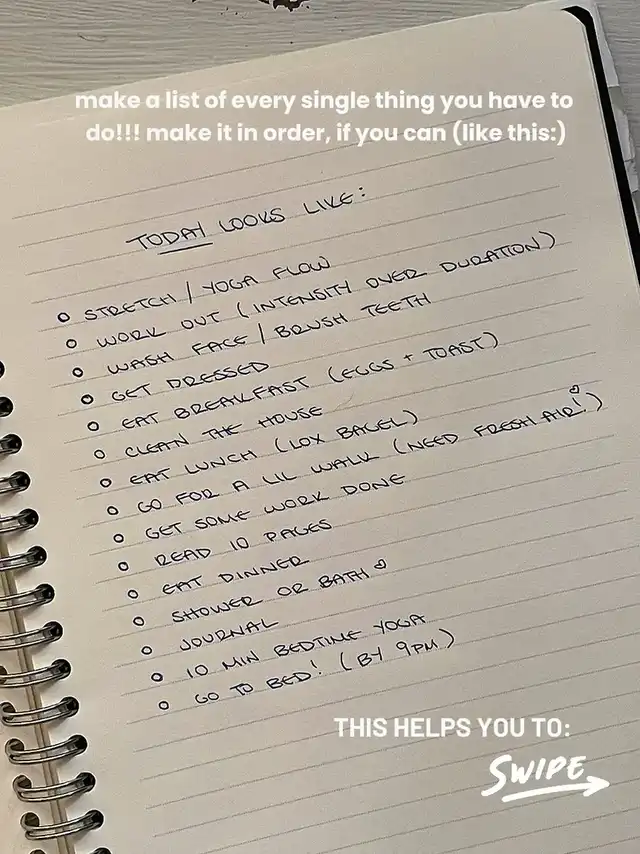 make a list of every single thing you have to
do!!! make it in order, if you can (like this:)
TODAY LOOKS LIKE:
STRETCH / YOGA FLOW
WORK OUT (INTENSITY OVER DURATION)
WASH FACE / BRUSH TEETH
GET DRESSED
EAT BREAKFAST (EGGS + TOAST)
CLEAN THE HOUSE
EAT LUNCH (LOX BAGEL)
GO FOR A LIL WALK (NEED FRESH AIR!)
GET SOME WORK DONE
READ 10 PAGES
EAT DINNER
SHOWER OR BATH
JOURNAL
10 MIN BEDTIME YOGA
GO TO BED! (BY 9PM)
THIS HELPS YOU TO:
SWIPE